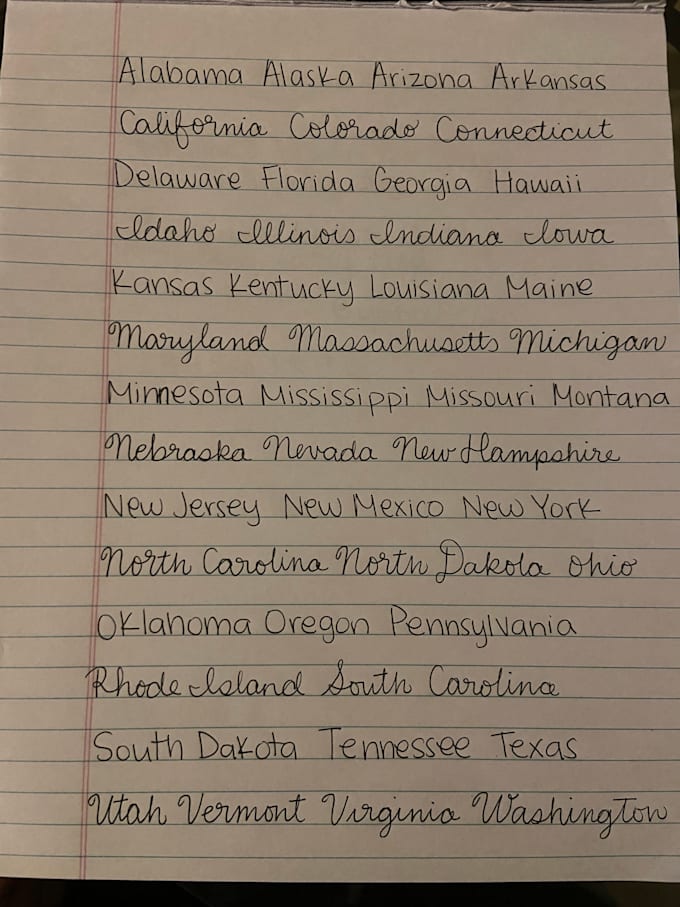 Alabama Alaska Arizona Arkansas
California Colorado Connecticut
Delaware Florida Georgia Hawaii
Idaho Illinois Indiana Iowa
Kansas Kentucky Louisiana Maine
Maryland Massachusetts Michigan
Minnesota Mississippi Missouri Montana
Nebraska Nevada New Hampshire
New Jersey New Mexico New York
North Carolina North Dakota Ohio
Oklahoma Oregon Pennsylvania
Rhode Island South Carolina
South Dakota Tennessee Texas
Utah Vermont Virginia Washington